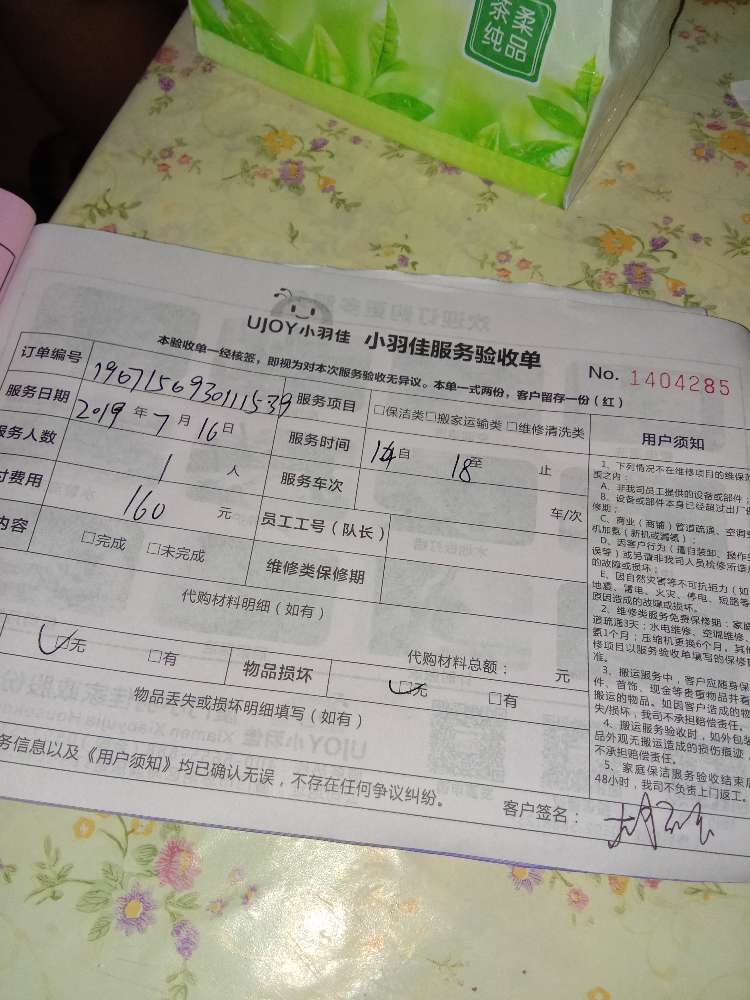 茶柔
纯品
UJOY小羽佳 小羽佳服务验收单
No. 1404285
本验收单一经核签，即视为对本次服务验收无异议。本单一式两份，客户留存一份（红）
订单编号 1967156930111539 服务项目 □保洁类□搬家运输类□维修清洗类
服务日期 2019年7月16日 服务时间 14自 18至 止
服务人数 1 人 服务车次 车/次
付费用 160 元 员工工号（队长）
内容 □完成 □未完成 维修类保修期
代购材料明细（如有）
代购材料总额： 元
□无 □有 物品损坏 □无 □有
物品丢失或损坏明细填写（如有）
务信息以及《用户须知》均已确认无误，不存在任何争议纠纷。
客户签名：
用户须知
1、下列情况不在维修项目的维保范
围之内：
A、非我司员工提供的设备或部件；
B、设备或部件本身已经超过出厂保
修期；
C、商业（商铺）管道疏通、空调
机加氨（新机或漏氨）；
D、因客户行为（擅自装卸、操作失
误等）或另请非我司人员检修所造成
的故障或损坏；
E、因自然灾害等不可抗拒力（如
地震、雷电、火灾、停电、短路等
原因造成的故障或损坏。
2、维修类服务免费保修期：家庭
道疏通3天；水电维修、空调维修、
氨1个月；压缩机更换6个月，其他
修项目以服务验收单填写的保修期
准。
3、搬运服务中，客户应随身保
件、首饰、现金等贵重物品并看
搬运的物品。如因客户造成的物
失/损坏，我司不承担赔偿责任。
4、搬运服务验收时，如外包装
品外观无搬运造成的损伤痕迹，
不承担赔偿责任。
5、家庭保洁服务验收结束后
48小时，我司不负责上门返工。